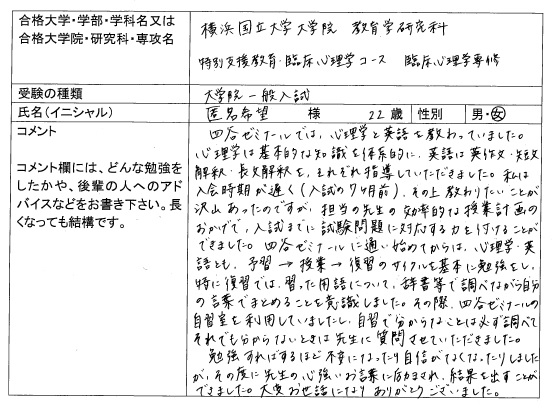 合格大学・学部・学科名又は
合格大学院・研究科・専攻名
横浜国立大学大学院 教育学研究科
特別支援教育・臨床心理学コース 臨床心理学専修
受験の種類
大学院一般入試
氏名（イニシャル）
匿名希望 様 22歳 性別 男・女
コメント
コメント欄には、どんな勉強を
したかや、後輩の人へのアド
バイスなどをお書き下さい。長
くなっても結構です。
四谷ゼミナールでは、心理学と英語を教わっていました。
心理学は基本的な知識を体系的に、英語は英作文・短文
解釈・長文解釈を、それぞれ指導していただきました。私は
入会時期が遅く（入試の7ヶ月前）、その上教わりたいことが
沢山あったのですが、担当の先生の効率的な授業計画の
おかげで、入試までに試験問題に対応する力を付けることが
できました。四谷ゼミナールに通い始めてからは、心理学・英
語とも、予習→授業→復習のサイクルを基本に勉強をし、
特に復習では、習った用語について、辞書等で調べながら自分
の言葉でまとめることを意識しました。その際、四谷ゼミナールの
自習室を利用していましたし、自習で分からないことは必ず調べて
それでも分からないときは先生に質問させていただきました。
勉強すればするほど不安になったり自信がなくなったりしました
が、その度に先生の心強いお言葉に励まされ、結果を出すことが
できました。大変お世話になりありがとうございました。